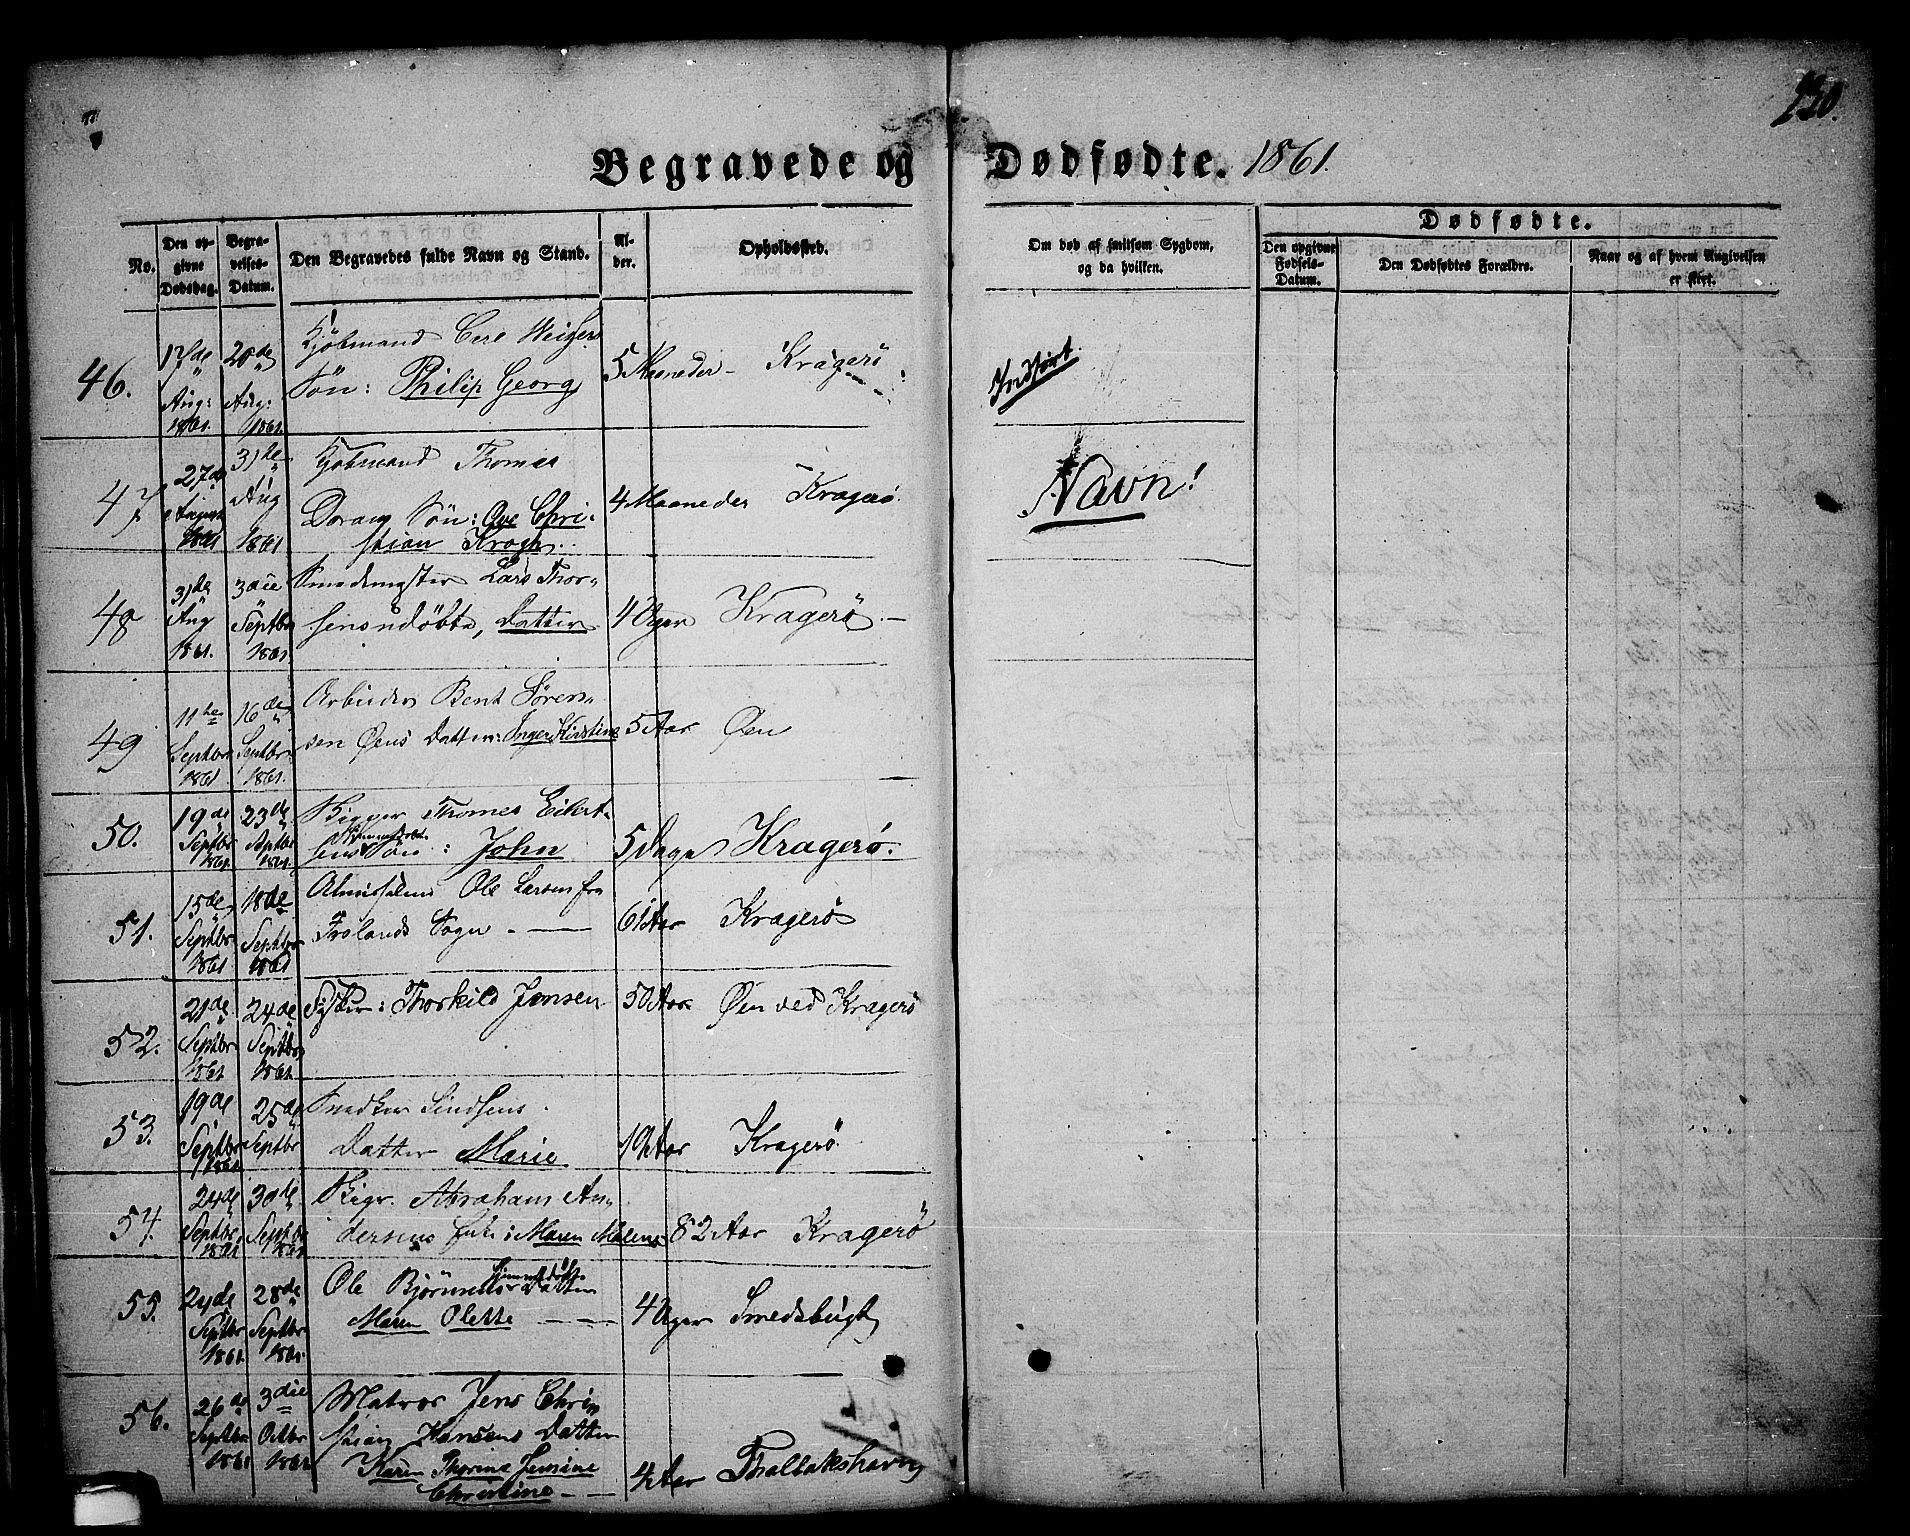 230.
Begravede og Dødfødte. 1861.
No.
Den opgivne Dødsdag.
Begravelses-Datum.
Den Begravedes fulde Navn og Stand.
Alder.
Opholdssted.
Om død af smitsom Sygdom, og da hvilken.
Dødfødte.
Den opgivne Fødsels-Datum.
Den Dødfødtes Forældre.
Naar og af hvem Angivelsen er skeet.
46.
17de Aug: 1861.
20de Aug: 1861.
Kjøbmand Carl
Søn: Philip Georg
5 Maaneder - Kragerø
Indført
47
27de August 1861
31te Aug 1861
Kjøbmand Thomas
Søn: Ove Chri-
stian Krogh.
4 Maaneder Kragerø.
Navn!
48
31te Aug 1861.
3die Septbr 1861.
Smedmester Lars Thor-
sens udøbte, Datter
4 Uger Kragerø -
49
11te Septbr 1861
16de Septbr 1861.
Arbeider Bent Søren-
sen Øens Datter: Inger Kirstine
5 Aar Øen
50.
19de Septbr 1861.
23de Septbr 1861.
Rigger Thomas Eilert-
sens hjemmedøbt Søn: John
5 Dage Kragerø.
51.
15de Septbr 1861
18de Septbr 1861
Almisselem Ole Larsen fra
Frolands Sogn -
61 Aar Kragerø
52.
21de Septbr 1861
24de Septbr 1861.
Thorkild Jensen
50 Aar Øen ved Kragerø
53.
19de Septbr 1861
25de Septbr
Snedker
Datter Marie
19 Aar Kragerø
54.
24de Septbr. 1861.
30te Septbr 1861.
Rigr. Abraham An-
dersens Enke: Maren Malene
82 Aar Kragerø
55.
24de Septbr 1861.
28de Septbr 1861.
Ole Bjørnsens hjemmedøbt Datter
Maren Olette -
4 Uger Smedsbugt
56.
26de Septbr 1861
3die Octbr 1861
Matros Jens Chri-
stian Hansens Datter
Karen Thorine Jensine
Christine -
4 Aar